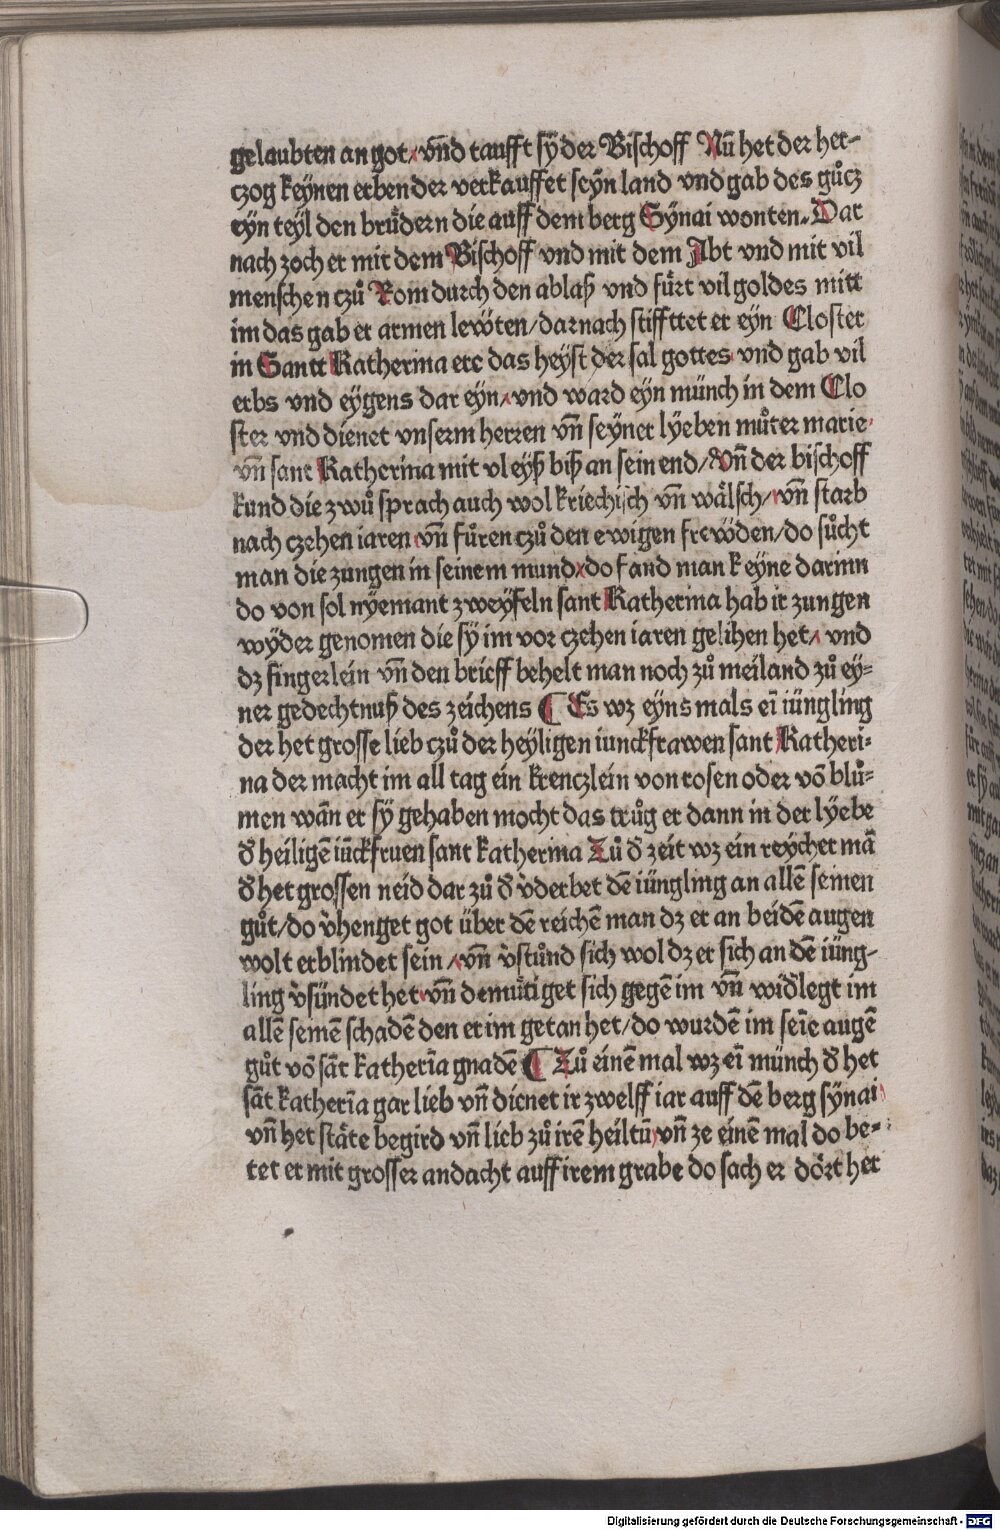 gelaubten an got / vn̄d taufft sÿ der Bischoff Nū het der her-
czog keÿnen erben der verkauffet seÿn land vnd gab des gůcz
eÿn teÿl den brůdern die auff dem berg Sÿnai wonten. Dar
nach zoch er mit dem Bischoff vnd mit dem Abt vnd mit vil
menschen czů Rom durch den ablaß vnd fůrt vil goldes mitt
im das gab er armen lewten / darnach stiffttet er eÿn Closter
in Santt Katherina ere das heÿst der sal gottes vnd gab vil
erbs vnd eÿgens dar eÿn / vnd ward eÿn münch in dem Clo
ster vnd dienet vnserm herren vn̄ seÿner lÿeben můter marie
vn̄ sant Katherina mit vleÿß biß an sein end / Vn̄ der bischoff
kund die zwů sprach auch wol kriechisch vn̄ wälsch / vn̄ starb
nach czehen iaren vn̄ fůren czů den ewigen frewden / do sůcht
man die zungen in seinem mund / do fand man keÿne darinn
do von sol nÿemant zweÿfeln sant Katherina hab ir zungen
wÿder genomen die sÿ im vor czehen iaren gelihen het / vnd
dz fingerlein vn̄ den brieff behelt man noch zů meiland zů eÿ=
ner gedechtnuß des zeichens ¶ Es wz eÿns mals eī iüngling
der het grosse lieb czů der heÿligen iunckfrawen sant Katheri=
na der macht im all tag ein krenczlein von rosen oder vō blů=
men wān er sÿ gehaben mocht das trůg er dann in der lÿebe
d̄ heiligē iūckfruen sant katherina Zů d̄ zeit wz ein reÿcher mā
d̄ het grossen neid dar zů d̄ v̄derbet dē iüngling an allē seinen
gůt / do v̄henget got über dē reichē man dz er an beidē augen
wolt erblindet sein / vn̄ v̄stůnd sich wol dz er sich an dē iüng-
ling v̄sündet het vn̄ demůtiget sich gegē im vn̄ wid̄legt im
allē seinē schadē den er im getan het / do wurdē im seīe augē
gůt vō sāt katherīa gnadē ¶ Zů einē mal wz eī münch d̄ het
sāt katherīa gar lieb vn̄ dienet ir zwelff iar auff dē berg sÿnai
vn̄ het stäte begird vn̄ lieb zů irē heiltū vn̄ ze einē mal do be=
tet er mit grosser andacht auff irem grabe do sach er dört her
Digitalisierung gefördert durch die Deutsche Forschungsgemeinschaft - DFG